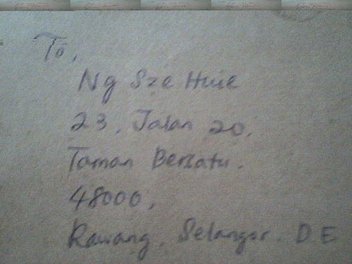 To,
Ng Sze Huie
23, Jalan 20,
Taman Bersatu.
48000,
Rawang, Selangor. D.E